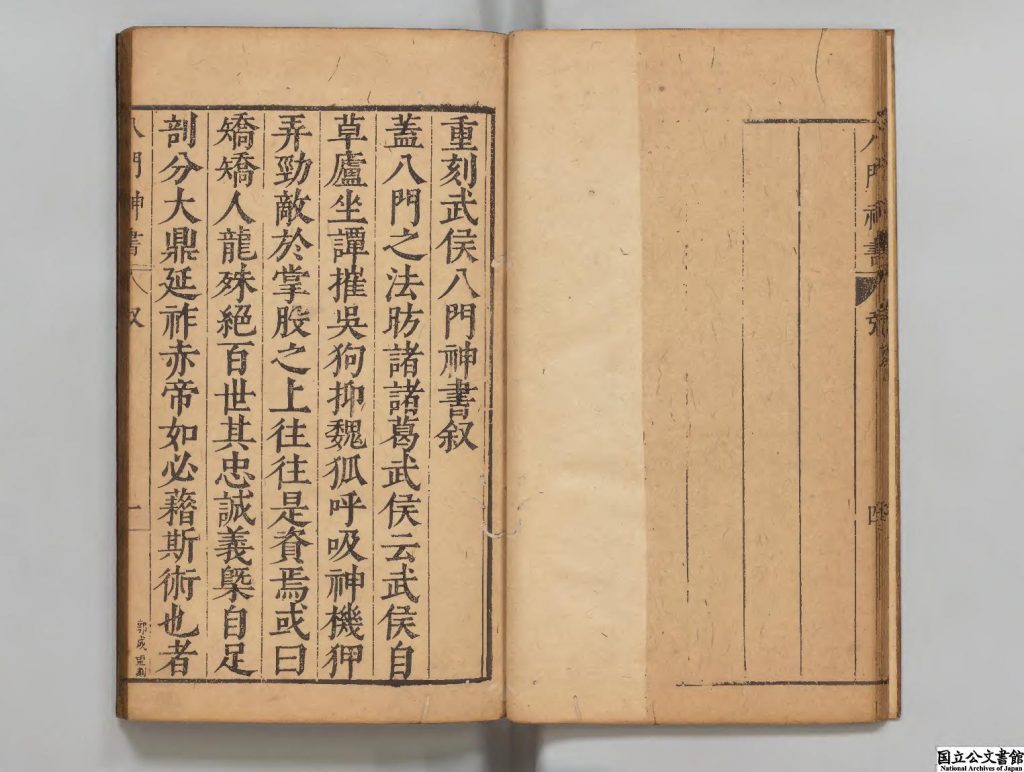 八門神書
四
重刻武侯八門神書叙
蓋八門之法昉諸諸葛武侯云武侯自
草廬坐譚摧吳狗抑魏狐呼吸神機狎
弄勁敵於掌股之上往往是資焉或曰
矯矯人龍殊絕百世其忠誠義槩自足
剖分大鼎延祚赤帝如必藉斯術也者
八門神書
叙
一
国立公文書館
National Archives of Japan